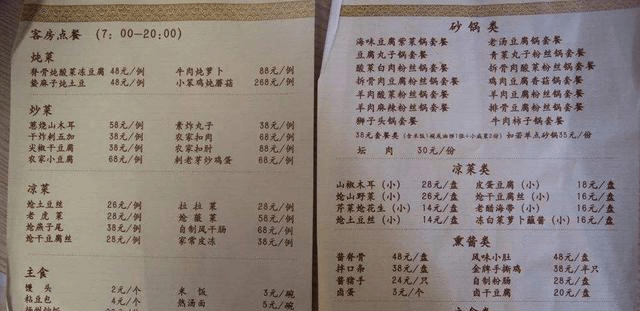 客房点餐 (7:00-20:00)
炖菜
脊骨炖酸菜冻豆腐 48元/例 牛肉炖萝卜 88元/例
鳌麻子炖土豆 48元/例 小笨鸡炖蘑菇 268元/例
炒菜
葱烧山木耳 58元/例 素炸丸子 38元/例
干炸刺五加 38元/例 农家扣肉 68元/例
尖椒干豆腐 38元/例 农家扣肘 88元/例
农家小豆腐 68元/例 刺老芽炒鸡蛋 68元/例
凉菜
炝土豆丝 26元/例 拉拉菜 28元/例
老虎菜 28元/例 炝蕨菜 58元/例
炝燕子尾 38元/例 自制风干肠 68元/例
炝干豆腐丝 28元/例 家常皮冻 38元/例
主食
馒头 2元/个 米饭 3元/碗
粘豆包 4元/个 热汤面 5元/碗
砂锅类
海味豆腐紫菜锅套餐 老汤豆腐锅套餐
豆腐丸子锅套餐 青菜丸子粉丝锅套餐
酸菜白肉粉丝锅套餐 拆骨肉酸菜粉丝锅套餐
拆骨肉豆腐粉丝锅套餐 鸡肉豆腐香菇锅套餐
羊肉酸菜粉丝锅套餐 羊肉豆腐粉丝锅套餐
羊肉麻辣粉丝锅套餐 排骨豆腐粉丝锅套餐
狮子头锅套餐 牛肉柿子锅套餐
38元套餐类(含米饭1碗或油饼1张+小咸菜2份)如若单点砂锅35元/份
坛肉 30元/份
凉菜类
山椒木耳(小) 28元/盘 皮蛋豆腐(小) 18元/盘
炝山野菜(小) 26元/盘 炝干豆腐丝(小) 16元/盘
芹菜炝花生(小) 14元/盘 老醋海带(小) 16元/盘
炝土豆丝(小) 14元/盘 冻白菜萝卜蘸酱(小) 16元/盘
熏酱类
酱脊骨 48元/盘 风味小肚 48元/盘
拌口条 38元/盘 金牌手撕鸡 38元/半只
酱猪手 24元/只 自制粉肠 28元/盘
卤蛋 3元/个 卤干豆腐 20元/盘